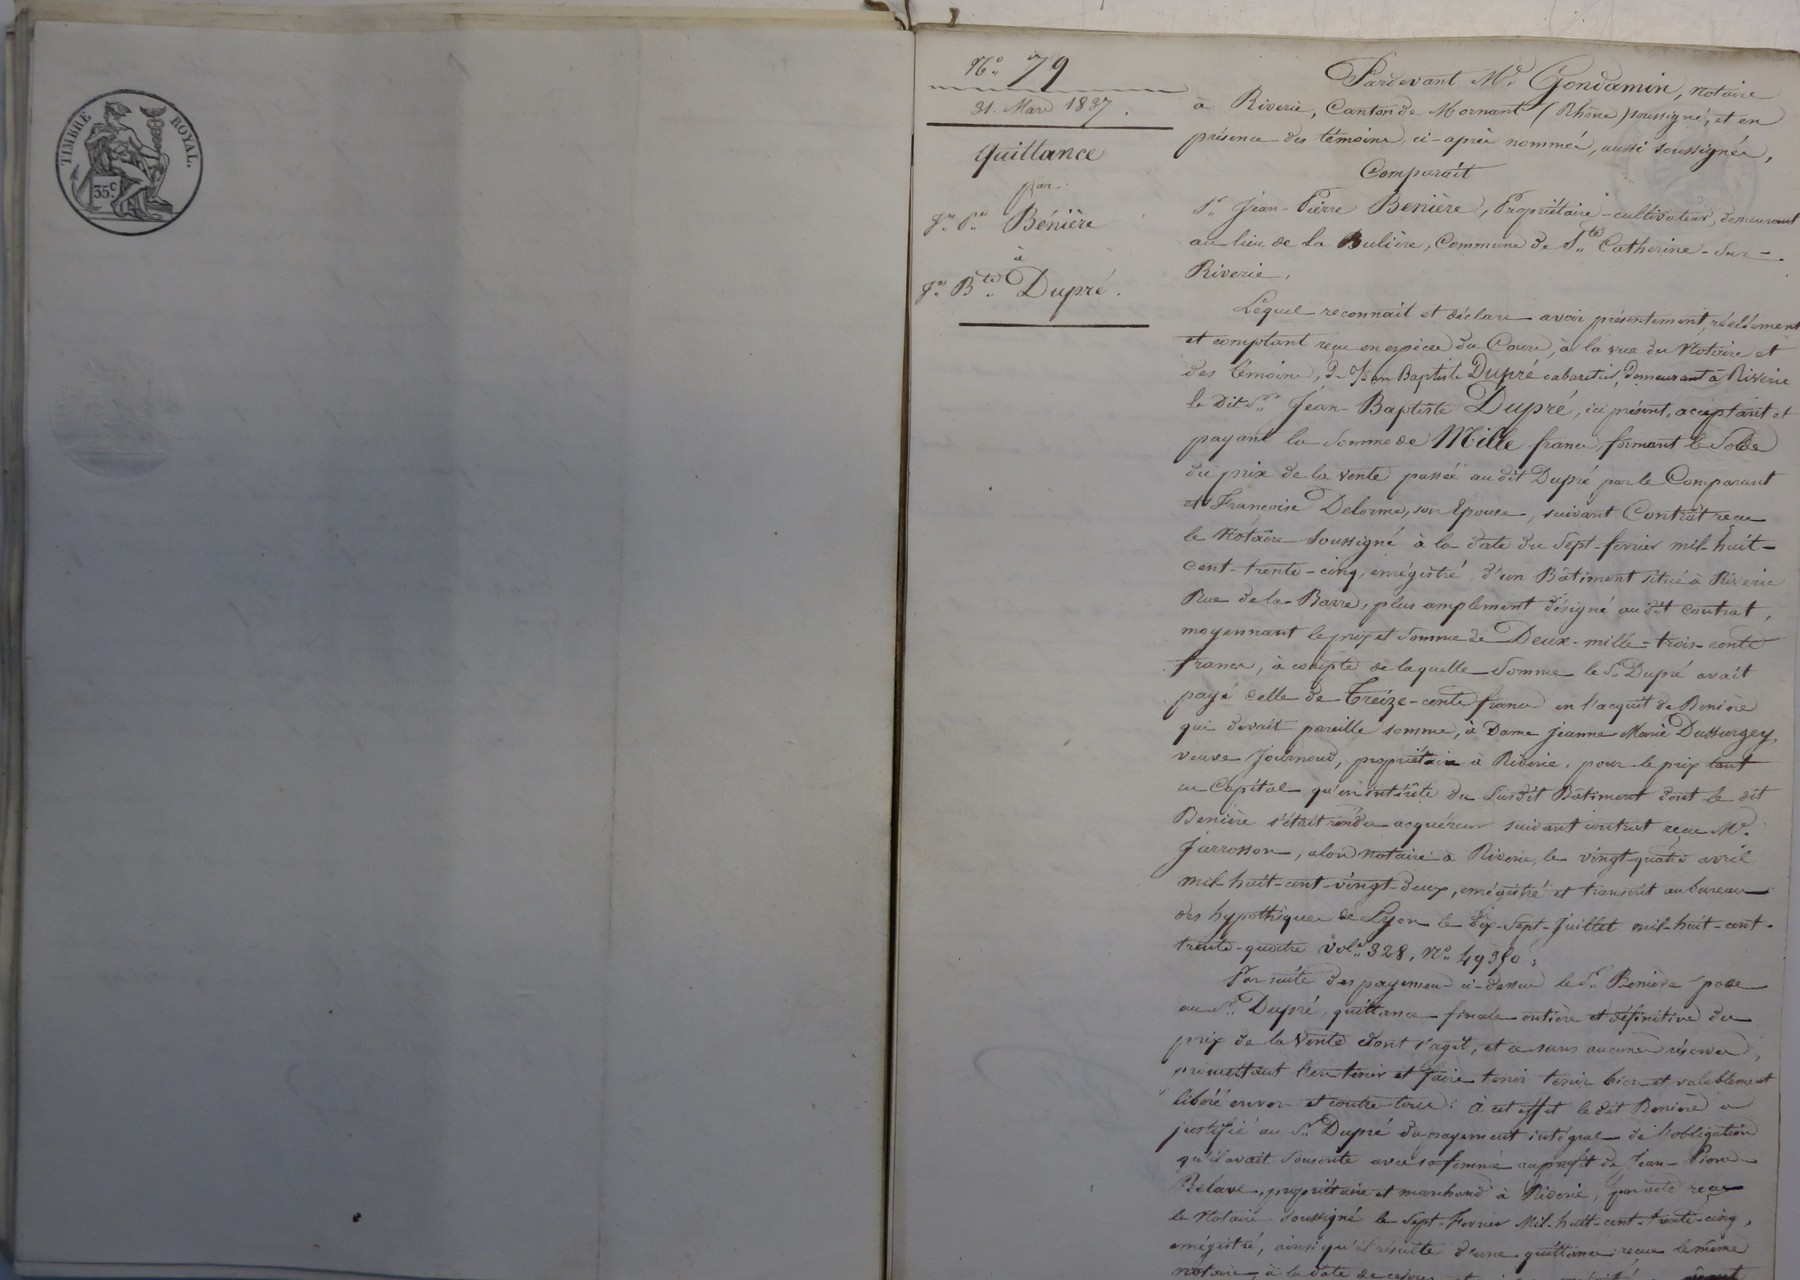 TIMBRE ROYAL.
35c
No. 79
31. Mars 1837.
Quittance
par
Jn. Pre. Bénière
à
Jn. Bte. Dupré.
Pardevant Me. Gondamin, notaire
à Riverie, Canton de Mornant (Rhône) soussigné, et en
présence des témoins ci-après nommés, aussi soussignés,
Comparait
Sr. Jean-Pierre Benière, Propriétaire-cultivateur, demeurant
au lieu de La Bulière, Commune de Ste. Catherine-sur-
Riverie,
Lequel reconnait et déclare avoir présentement, réellement
et comptant reçu en espèces du Cours, à la vue du Notaire et
des témoins, de Jean Baptiste Dupré cabaretier, demeurant à Riverie
le dit Sr. Jean-Baptiste Dupré, ici présent, acceptant et
payant la somme de Mille francs formant le Solde
du prix de la vente passée au dit Dupré par le Comparant
et Francoise Delorme, son Epouse, suivant Contrat reçu
le Notaire soussigné à la date du Sept-fevrier mil-huit-
cent-trente-cinq, enrégistré, d'un Bâtiment situé à Riverie
Rue de la-Barre, plus amplement désigné au dit contrat,
moyennant le prix et somme de Deux-mille-trois-cents
francs, à compte de laquelle somme le Sr. Dupré avait
payé celle de Treize-cents francs en l'acquit de Benière
qui devait pareille somme, à Dame Jeanne Marie Dussurgey,
veuve Journoud, propriétaire à Riverie, pour le prix tant
en Capital qu'en intérêts du susdit Bâtiment dont le dit
Benière s'était rendu acquéreur suivant contrat reçu Me.
Jarrosson, alors notaire à Riverie, le vingt-quatre avril
mil-huit-cent-vingt-deux, enrégistré et transcrit au bureau
des hypothèques de Lyon le dix-sept-Juillet mil-huit-cent-
trente-quatre vol. 328, No.
Par suite des payemens ci-dessus le Sr. Benière passe
au Sr. Dupré, quittance finale entière et définitive du
prix de la Vente dont s'agit, et ce sans aucunes réserves,
promettant l'en tenir et faire tenir tenir bien et valablement
libéré envers et contre tous: à cet effet le dit Benière a
justifié au Sr. Dupré du payement intégral de l'obligation
qu'il avait Souscrite avec sa femme au profit de Jean-Pierre
propriétaire et marchand à Riverie, par acte reçu
le Notaire soussigné le Sept-Fevrier Mil-huit-cent-trente-cinq,
enrégistré, ainsi qu'il résulte d'une quittance reçue le même
notaire, à la date de ce jour